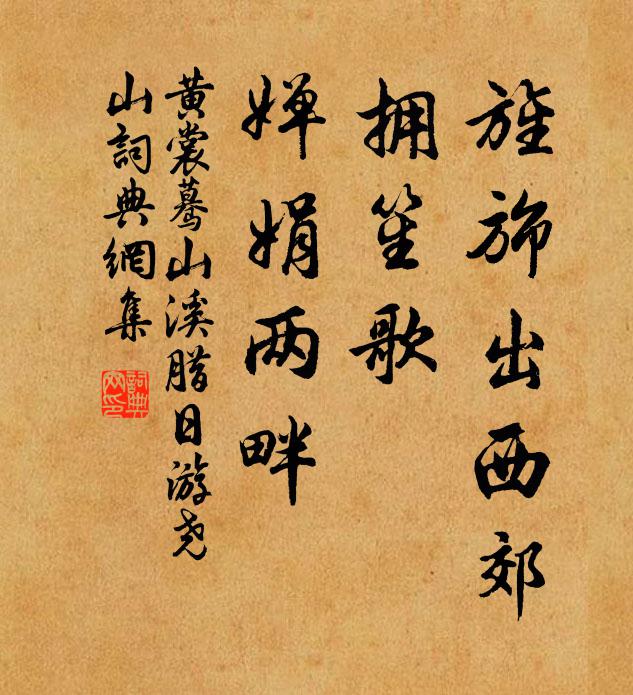 旌旆出西郊
拥笙歌
婵娟两畔
黄裳蓦山溪腊日游尧
山詞典網集
詞典
网印